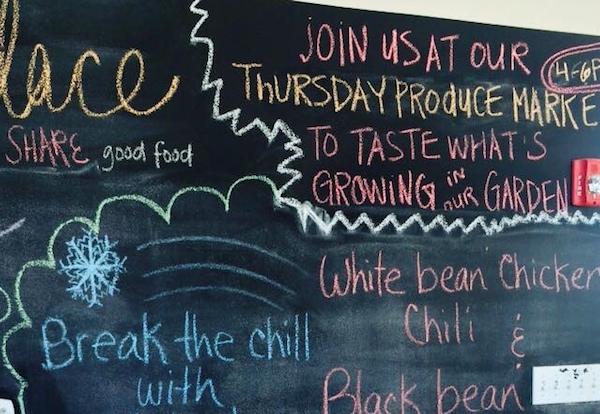 lace
SHARE good food
JOIN US AT OUR
THURSDAY PRODUCE MARKE
4-6P
TO TASTE WHAT'S
GROWING IN OUR GARDEN
FIRE
Break the chill
with
White bean Chicken
Chili &
Black bean